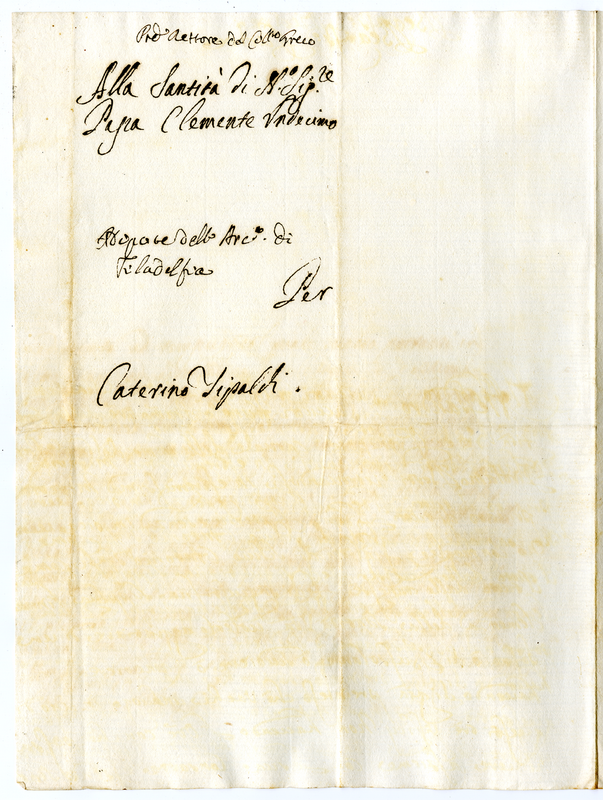 Pred. Rettore del Coll.o Greco
Alla Santità di N.o Sig.re
Papa Clemente Undecimo
Nipote dell' Arc.o di
Filadelfia
Per
Caterino Tipaldi.